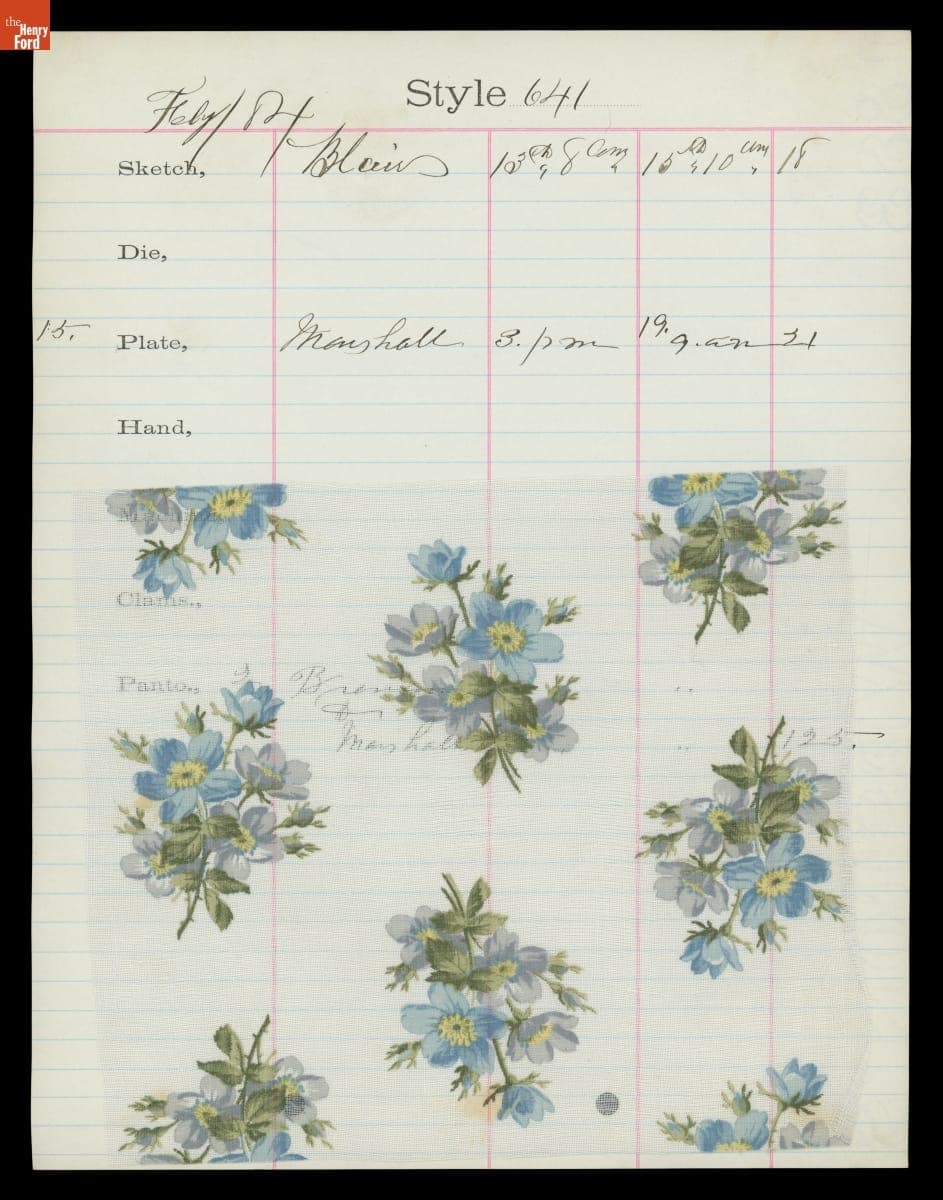 the
Henry
Ford
Style 641
Sketch, Blair 13th 8 15th 10 18
Die,
15. Plate, Marshall 3. pm 19. 9. am 21
Hand,
Clams.,
Panto.,
Marshall 125.